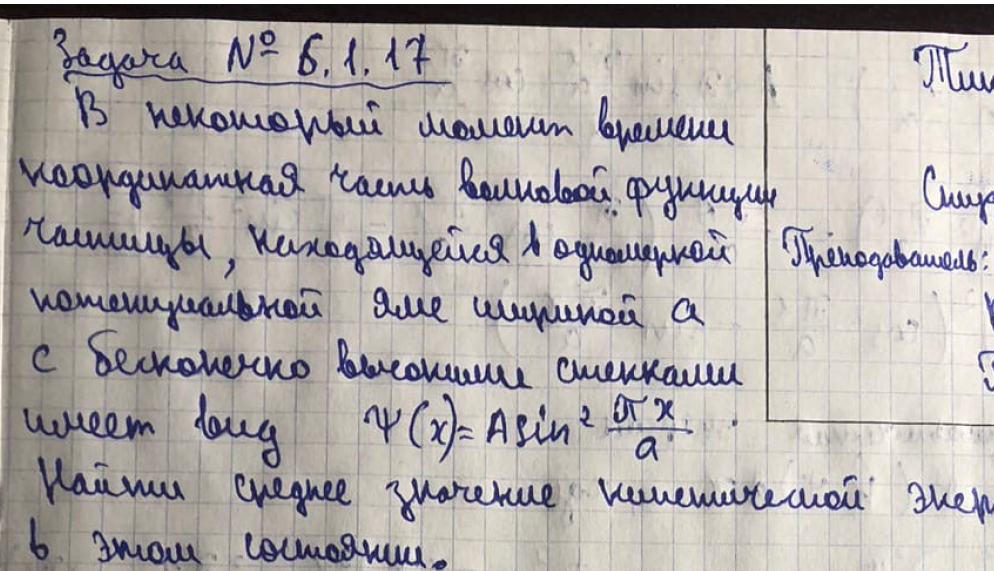 Задача № 6.1.17
В некоторый момент времени
координатная часть волновой функции
частицы, находящейся в одномерной
потенциальной яме шириной a
с бесконечно высокими стенками
имеет вид Ψ(x)= A sin² πx/a.
Найти среднее значение кинетической
в этом состоянии.
Преподаватель: